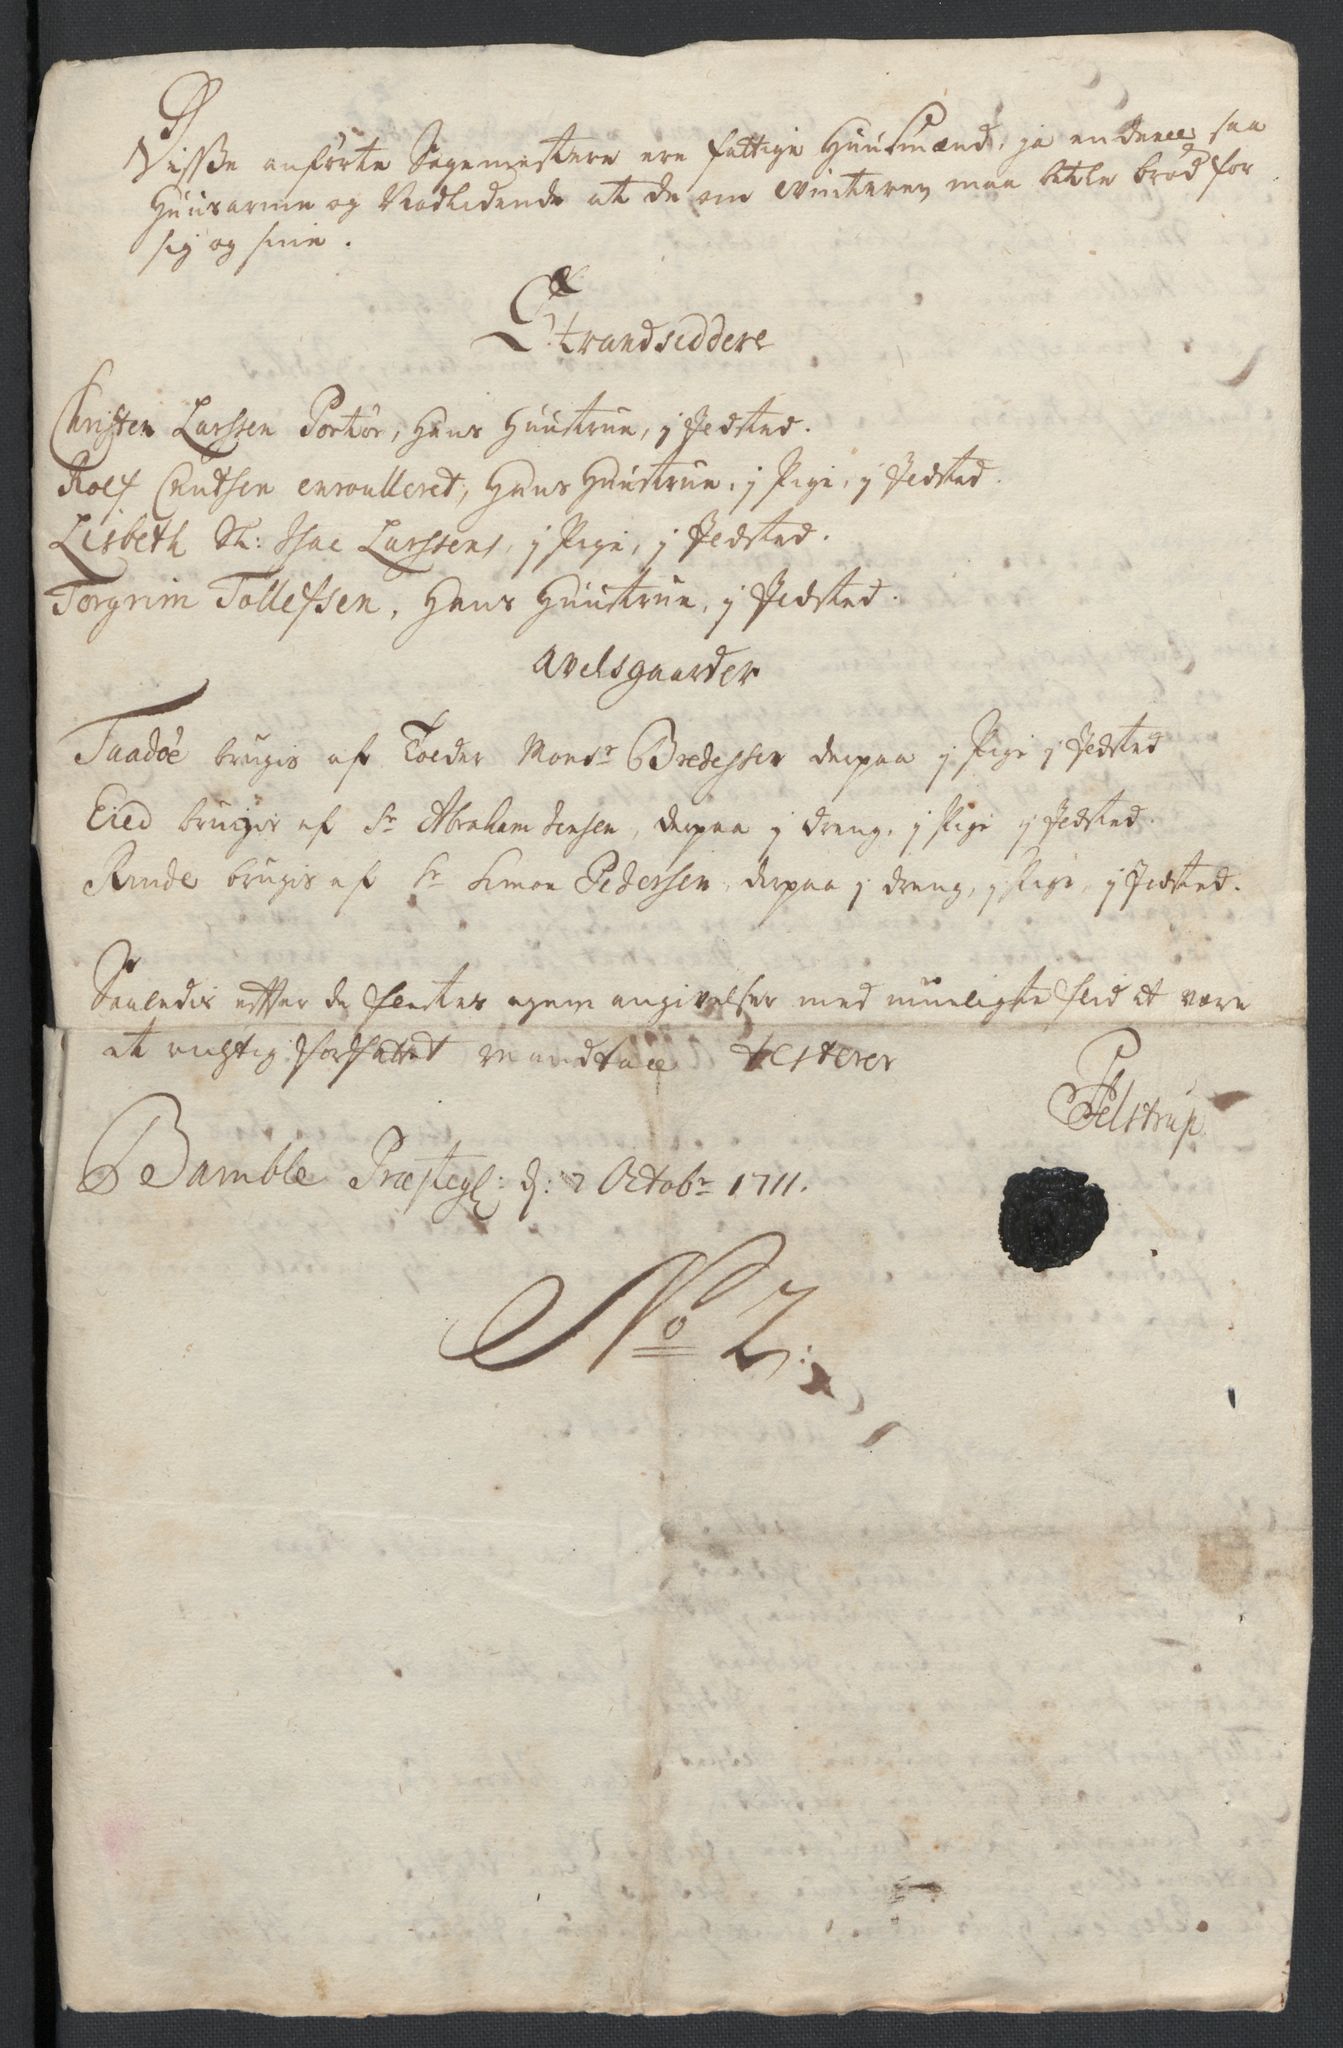 Disse anførte Sagemestere ere fattige Huusmænd, ja en deel saa
Huusarme og Nødlidende at de om vinteren maa betle brød for
sig og sine.
Strandsiddere
Christen Larssen Portør, Hans Huustrue, j Jldsted.
Rolf Cnudsen enroulleret, Hans Huustrue, j Pige, j Jldsted.
Lisbeth Sl: Isac Larssens, j Pige, j Jldsted.
Torgrim Tollefsen, Hans Huustrue, j Jldsted.
Avelsgaarder
Taadøe brugis af Toeder Monsr Bredessen derpaa j Pige j Jldsted
Eied brugis af Sr Abraham Jensen, derpaa j dreng, j Pige j Jldsted.
Rinde brugis af Sr Simon Pedersen, derpaa j dreng, j Pige, j Jldsted.
Saaledis efter de fleestes egen angivelser med mueligste flid at være
et rigtig forfattet mandtall testerer
Pelstrup
Bamble Præstegl: d: 2 Octobr 1711.
No 2: